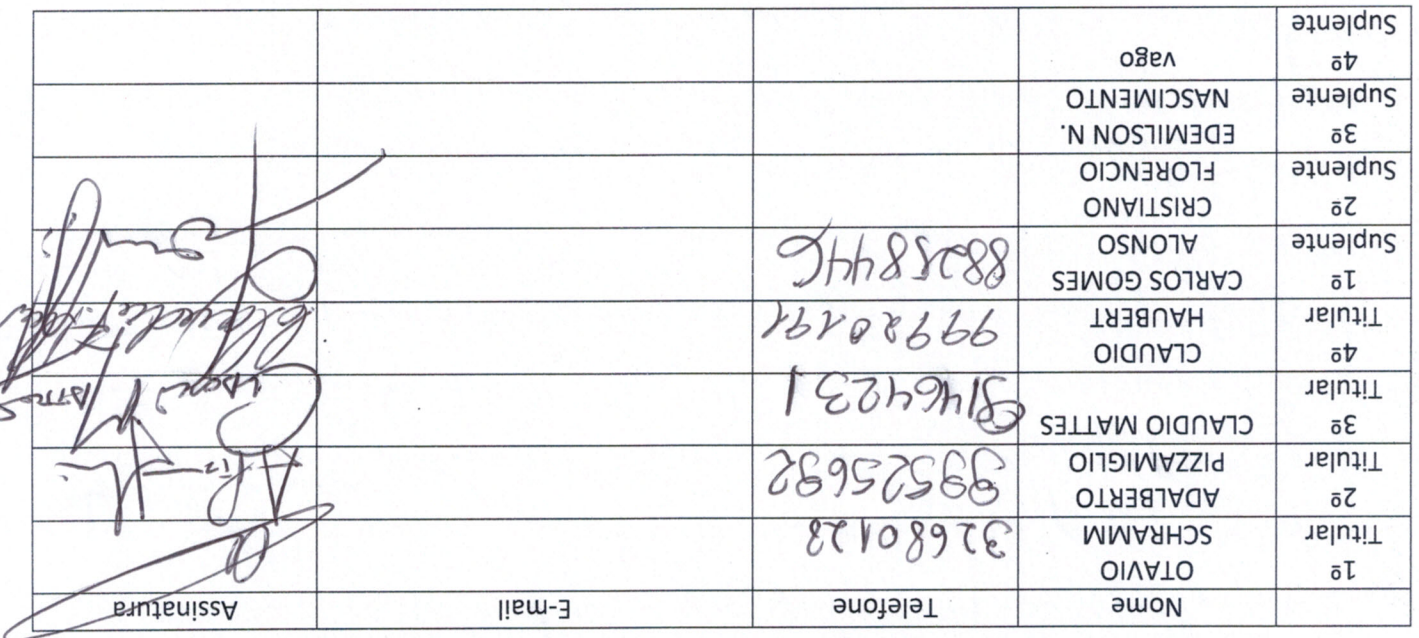 Nome Telefone E-mail Assinatura
1º Titular
OTAVIO SCHRAMM
32680128
2º Titular
ADALBERTO PIZZAMIGLIO
99525692
3º Titular
CLAUDIO MATTES
81464231
4º Titular
CLAUDIO HAUBERT
1º Suplente
CARLOS GOMES ALONSO
88258446
2º Suplente
CRISTIANO FLORENCIO
3º Suplente
EDEMILSON N. NASCIMENTO
4º Suplente
vago